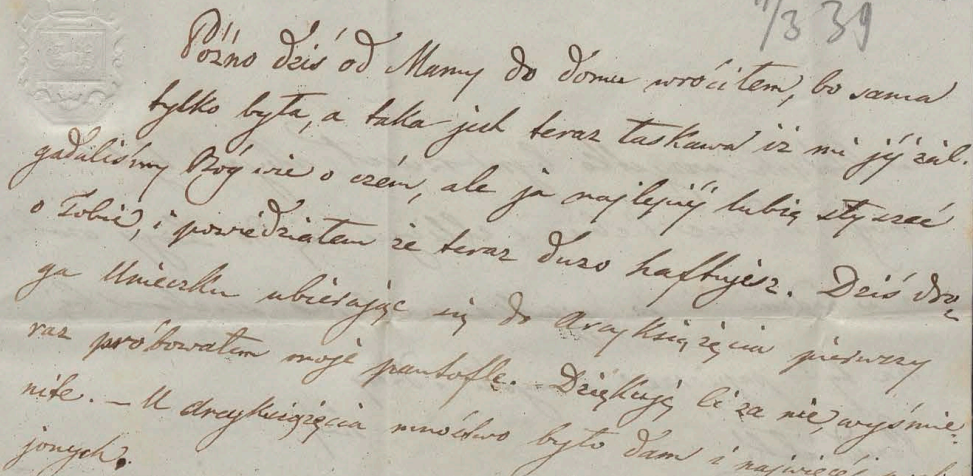 11/3 39
Późno dziś od Mamy do domu wróciłem, bo sama
tylko była, a taka jest teraz łaskawa iż mi jéj żal.
gadaliśmy Bóg wie o czém, ale ja najlepiéj lubię słyszeć
o Tobie, i powiedziałem że teraz dużo haftujesz. Dziś dro
ga Unieczku ubierając się do arcyksięcia pierwszy
raz próbowałem moje pantofle. Dziękuję Ci za nie, wyśmie
nite. – U arcyksięcia mnóstwo było dam i najwięcéj
jonych.